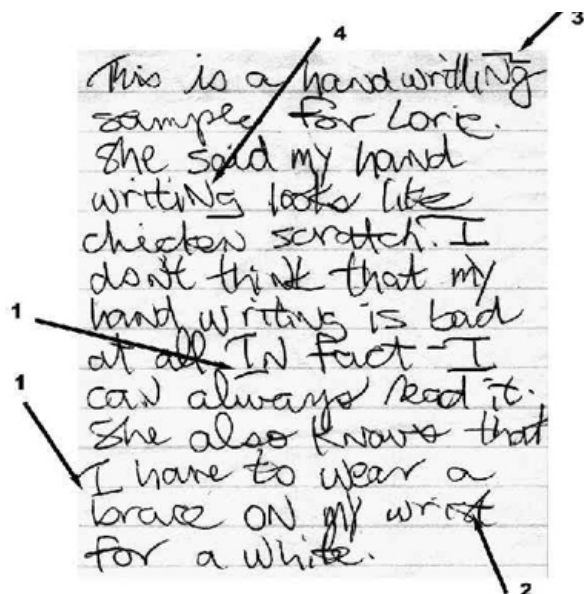 3
4
This is a handwritting
sample for Lorie.
She said my hand
writing looks like
chicken scratch. I
don't think that my
hand writing is bad
1
at all IN fact - I
1
can always read it.
She also knows that
I have to wear a
brace ON my wrist
for a while.
2